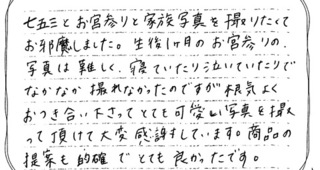 七五三とお宮参りと家族写真を撮りたくて
お邪魔しました。生後1ヶ月のお宮参りの、
写真は難しく、寝ていたり泣いていたりで
なかなか撮れなかったのですが根気よく
おつき合い下さってとても可愛い写真を撮
って頂けて大変感謝しています。商品の
提案も的確でとても良かったです。